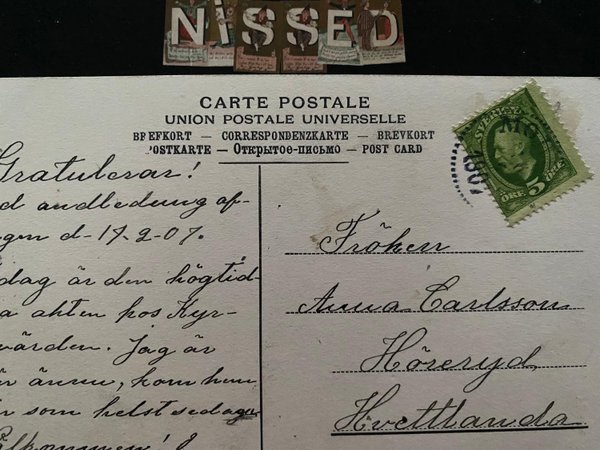 NiSSED
CARTE POSTALE
UNION POSTALE UNIVERSELLE
BREFKORT — CORRESPONDENZKARTE — BREVKORT
POSTKARTE — Открытое-письмо — POST CARD
SVERIGE
5
ÖRE
1907
Gratulerar!
d andledning af
gen d-17-2-07.
dag är den högtid-
a akten hos Kyr-
värden. Jag är
r ännu, kom hem
r som helst sedan
Välkommen!
Fröken
Anna Carlsson
Höreryd
Hvettlanda